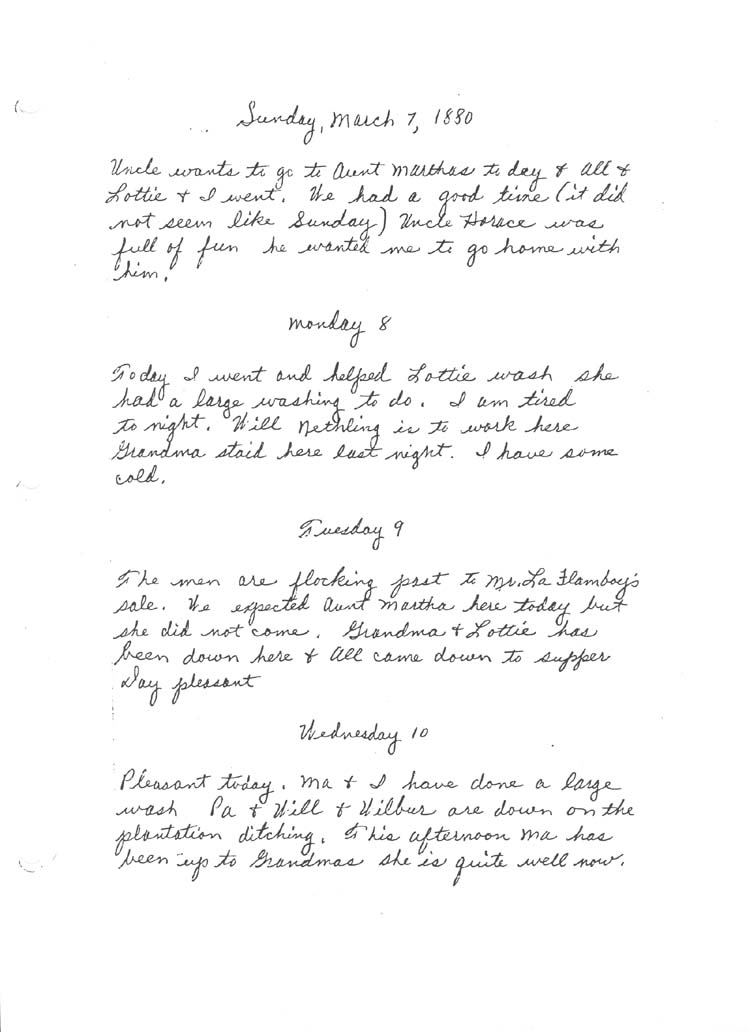 Sunday, March 7, 1880
Uncle wants to go to Aunt Marthas to day & All &
Lottie & I went. We had a good time (it did
not seem like Sunday) Uncle Horace was
full of fun he wanted me to go home with
him.
Monday 8
Today I went and helped Lottie wash she
had a large washing to do. I am tired
to night. Will Nethling is to work here
Grandma staid here last night. I have some
cold.
Tuesday 9
The men are flocking past to Mr. La Flamboy's
sale. We expected Aunt Martha here today but
she did not come. Grandma & Lottie has
been down here & All came down to supper
Day pleasant
Wednesday 10
Pleasant today. Ma & I have done a large
wash Pa & Will & Wilbur are down on the
plantation ditching. This afternoon Ma has
been up to Grandmas she is quite well now.